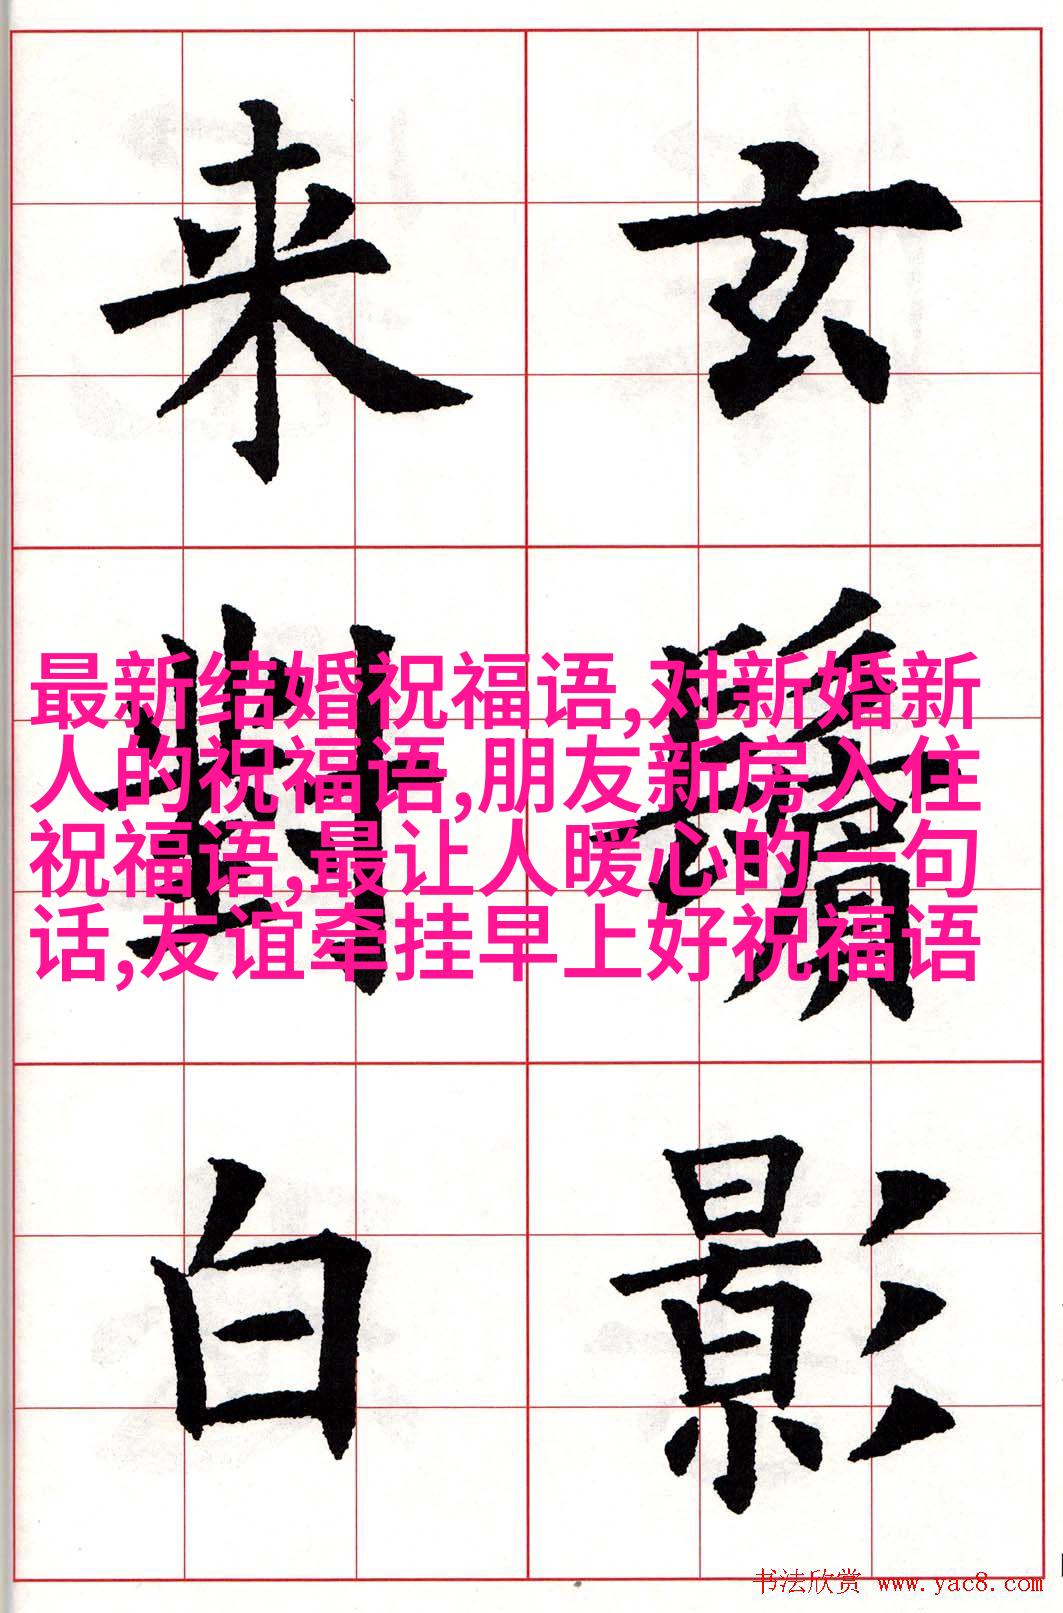 玄鬢影
来對白
最新结婚祝福语,对新婚新
人的祝福语,朋友新房入住
祝福语,最让人暖心的一句
话,友谊牵挂早上好祝福语
书法欣赏 www.yac8.com